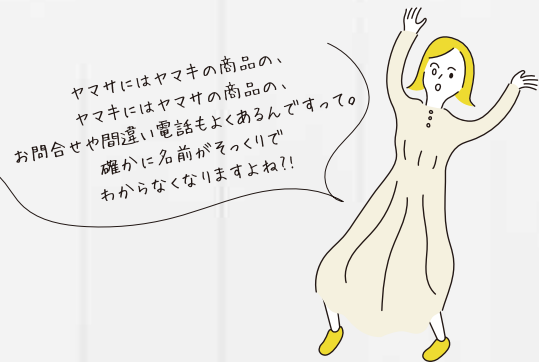 ヤマサにはヤマキの商品の、
ヤマキにはヤマサの商品の、
お問合せや間違い電話もよくあるんですって。
確かに名前がそっくりで
わからなくなりますよね?!